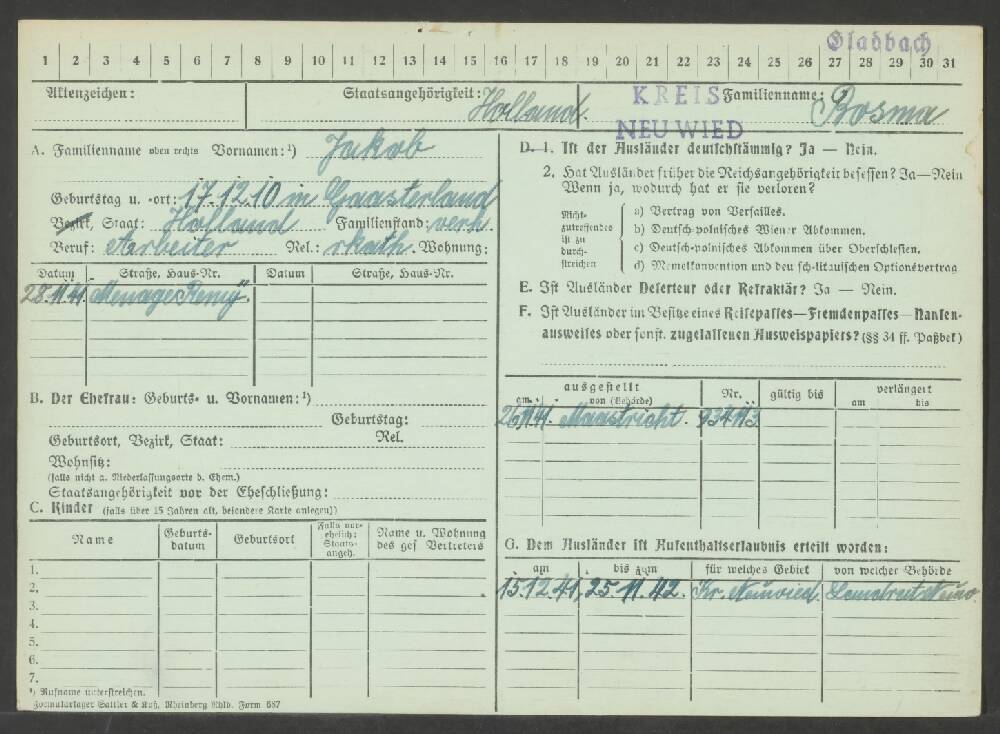 Gladbach
1 2 3 4 5 6 7 8 9 10 11 12 13 14 15 16 17 18 19 20 21 22 23 24 25 26 27 28 29 30 31
Aktenzeichen:
Staatsangehörigkeit: Holland.
KREIS
NEUWIED
Familienname: Bosma
A. Familienname oben rechts Vornamen:¹) Jakob
Geburtstag u. -ort: 17.12.10 in Gaasterland
Bezirk, Staat: Holland Familienstand: verh.
Beruf: Arbeiter Rel.: rkath. Wohnung:
Datum Straße, Haus-Nr. Datum Straße, Haus-Nr.
28.11.41. Menage Remy".
B. Der Ehefrau: Geburts- u. Vornamen:¹)
Geburtstag:
Geburtsort, Bezirk, Staat: Rel.
Wohnsitz:
(falls nicht a. Niederlassungsorte d. Ehem.)
Staatsangehörigkeit vor der Eheschließung:
C. Kinder (falls über 15 Jahren alt, besondere Karte anlegen))
Name
Geburts-
datum
Geburtsort
Falls unehelich:
Staats-
angeh.
Name u. Wohnung
des ges Vertreters
1.
2.
3.
4.
5.
6.
7.
¹) Rufname unterstreichen.
Formularlager Sattler & Koß, Rheinberg Rhld. Form 687
D. 1. Ist der Ausländer deutschstämmig? Ja — Nein.
2. Hat Ausländer früher die Reichsangehörigkeit besessen? Ja—Nein
Wenn ja, wodurch hat er sie verloren?
Nicht-
zutreffendes
ist zu
durch-
streichen
a) Vertrag von Versailles.
b) Deutsch-polnisches Wiener Abkommen.
c) Deutsch-polnisches Abkommen über Oberschlesien.
d) Memelkonvention und deu sch-litauischen Optionsvertrag
E. Ist Ausländer Deserteur oder Refraktär? Ja — Nein.
F. Ist Ausländer im Besitze eines Reisepasses—Fremdenpasses—Nansen-
ausweises oder sonst. zugelassenen Ausweispapiers? (§§ 34 ff. Paßbek)
ausgestellt Nr. gültig bis verlängert
am von (Behörde) am bis
26.11.41. Maastricht. 934113
G. Dem Ausländer ist Aufenthaltserlaubnis erteilt worden:
am bis zum für welches Gebiet von welcher Behörde
15.12.41, 25.11.42. Kr. Neuwied. Landrat Neuw.